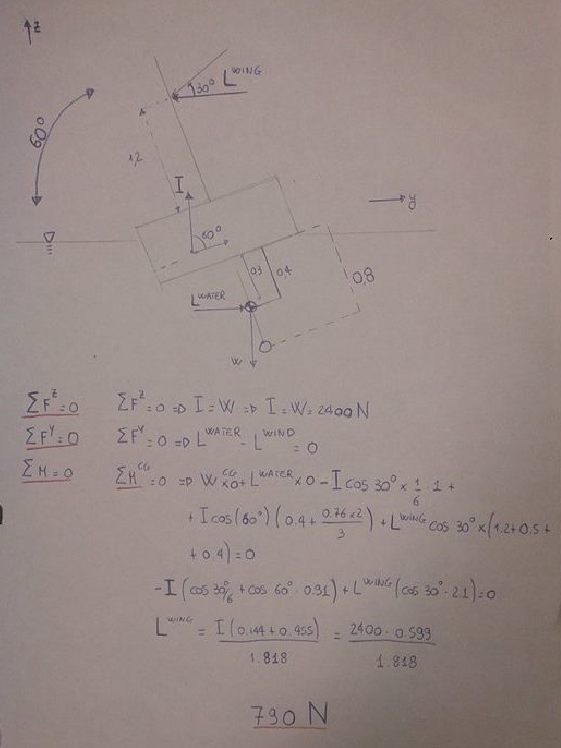 z
60°
30° L^WING
1,2
I
60°
y
0.5
0,4
0,8
L^WATER
W
ΣF^Z=0 ΣF^Z=0 => I=W => I=W=2400N
ΣF^Y=0 ΣF^Y=0 => L^WATER - L^WIND = 0
ΣM=0 ΣM^CG=0 => W^CG x0 + L^WATER x0 - I cos 30° x 1/6 · 1 +
+ I cos(60°) (0.4 + 0.76x2/3) + L^WING cos 30° x (1.2+0.5+
+0.4) = 0
-I (cos 30°/6 + cos 60° · 0.91) + L^WING (cos 30° · 2.1) = 0
L^WING = I (0.144 + 0.455)/1.818 = 2400 · 0.599/1.818
790 N